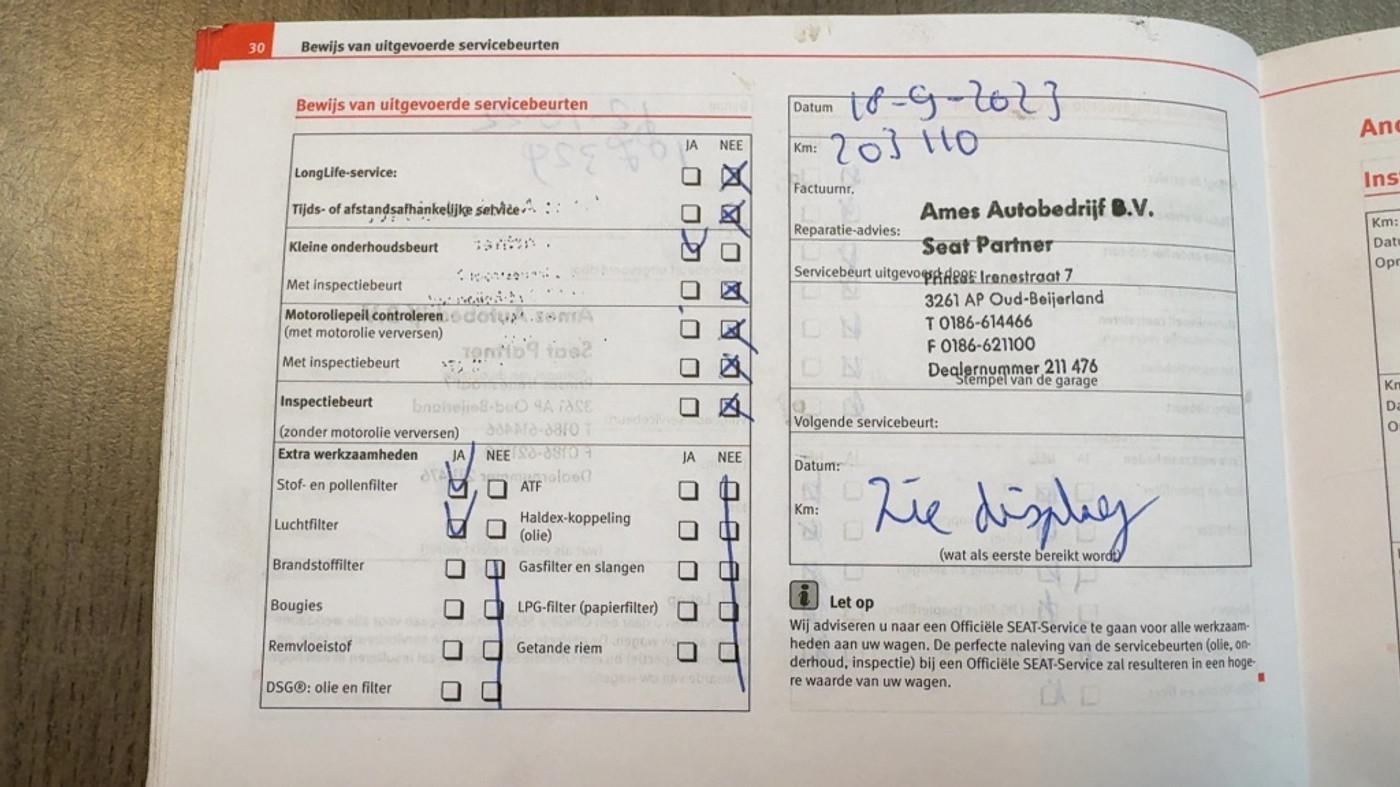 30 Bewijs van uitgevoerde servicebeurten
Bewijs van uitgevoerde servicebeurten
JA NEE
LongLife-service:
Tijds- of afstandsafhankelijke service
Kleine onderhoudsbeurt
Met inspectiebeurt
Motoroliepeil controleren
(met motorolie verversen)
Met inspectiebeurt
Inspectiebeurt
(zonder motorolie verversen)
Extra werkzaamheden JA NEE JA NEE
Stof- en pollenfilter ATF
Luchtfilter Haldex-koppeling
(olie)
Brandstoffilter Gasfilter en slangen
Bougies LPG-filter (papierfilter)
Remvloeistof Getande riem
DSG®: olie en filter
Datum 18-9-2023
Km: 203 110
Factuurnr.
Ames Autobedrijf B.V.
Reparatie-advies:
Seat Partner
Servicebeurt uitgevoerd door:
Prinses Irenestraat 7
3261 AP Oud-Beijerland
T 0186-614466
F 0186-621100
Dealernummer 211 476
Stempel van de garage
Volgende servicebeurt:
Datum:
Km: Zie display
(wat als eerste bereikt wordt)
i Let op
Wij adviseren u naar een Officiële SEAT-Service te gaan voor alle werkzaam-
heden aan uw wagen. De perfecte naleving van de servicebeurten (olie, on-
derhoud, inspectie) bij een Officiële SEAT-Service zal resulteren in een hoge-
re waarde van uw wagen.
Km: